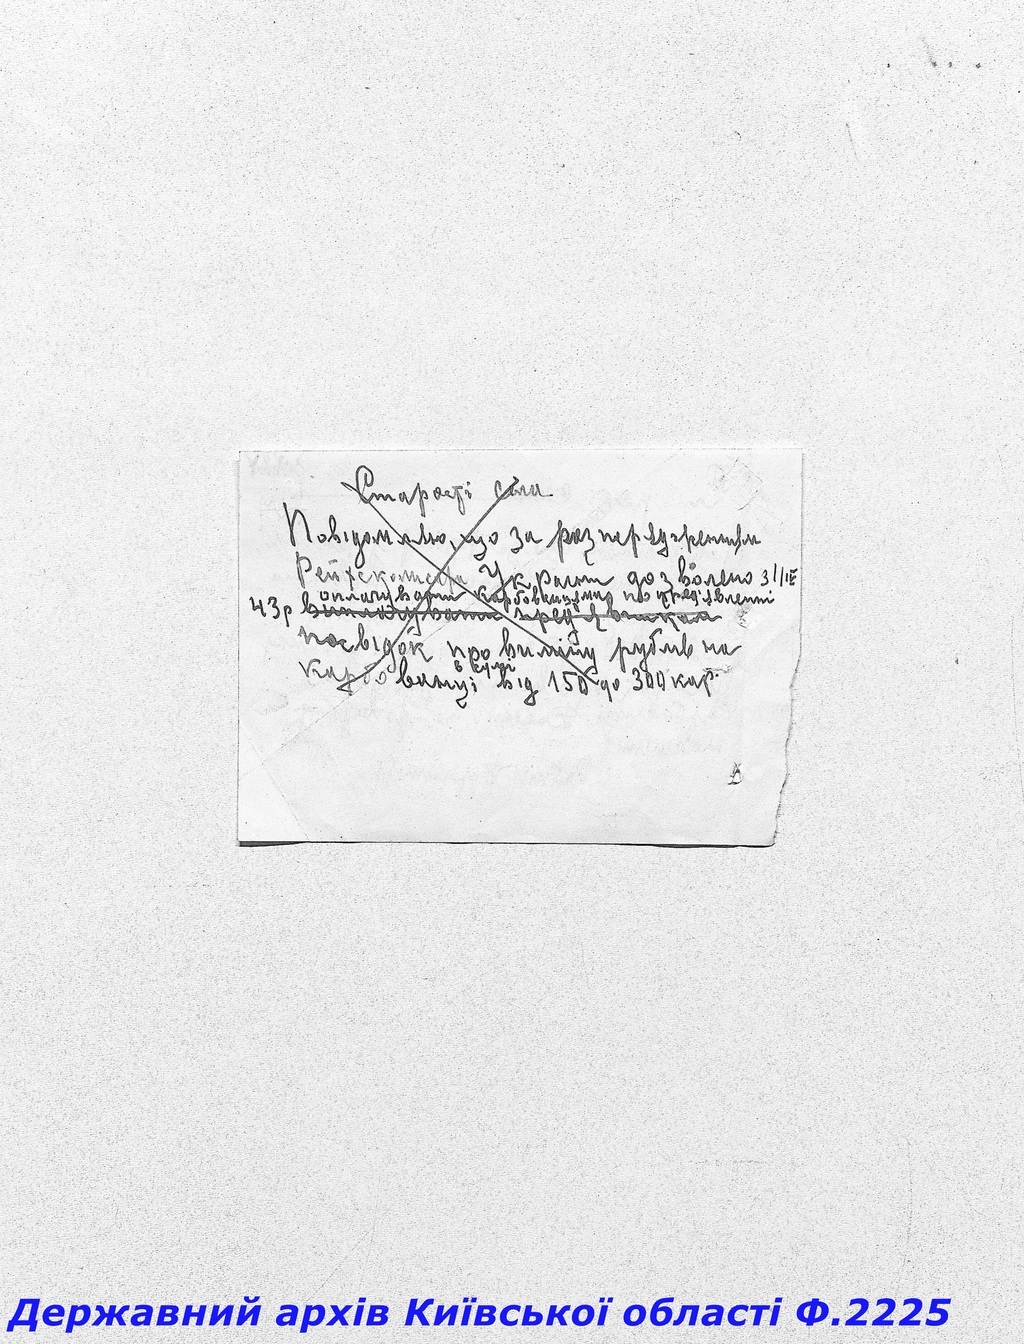 Старості села
Повідомляю, що за розпорядженням
Рейхскомісара України дозволено з 1/ІХ
оплачувати карбованцями по пред'явленні
43р виплачувати пред'явникам
посвідок про виміну рублів на
в сумі
карбованці від 150 до 300 кар.
Державний архів Київської області Ф.2225